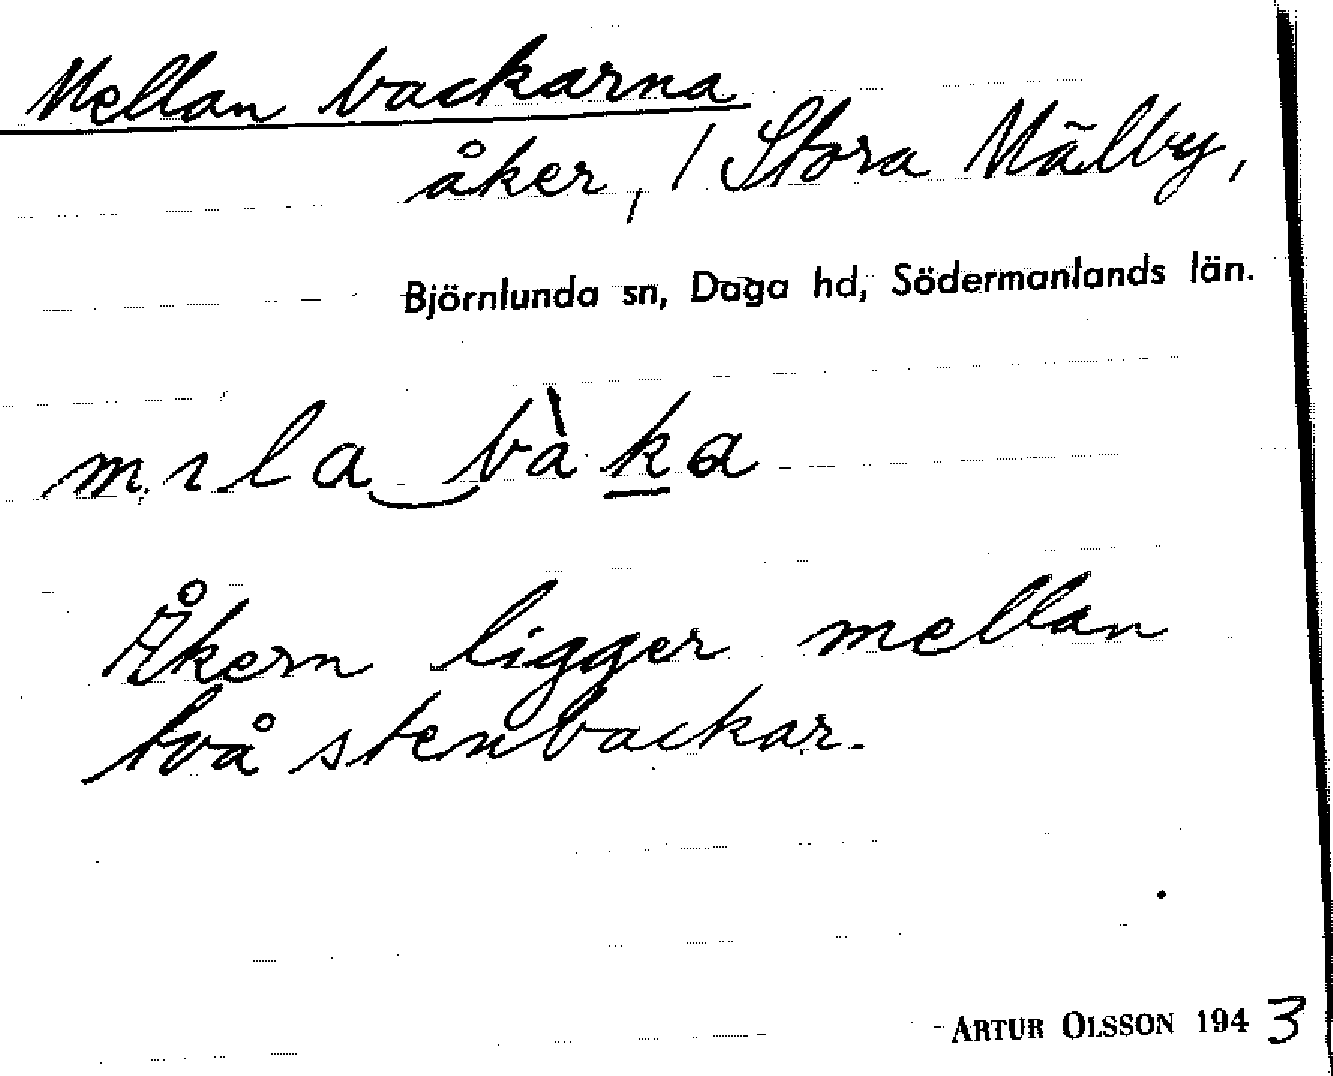 Mellan backarna
åker, / Stora Mälby,
Björnlunda sn, Daga hd, Södermanlands län.
mıla bàka
Åkern ligger mellan
två stenbackar.
ARTUR OLSSON 1943